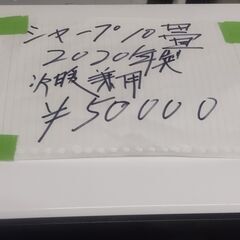 シャープ10畳
2020年製
冷暖兼用
¥50000